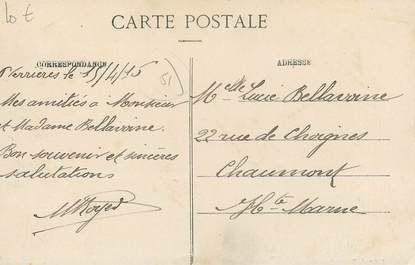 CARTE POSTALE
CORRESPONDANCE
ADRESSE
Verrières le 15/4/15
51
Mes amitiés à Monsieur
et Madame Bellavoine.
Bon souvenir et sincères
salutations
Melle Lucie Bellavoine
22 rue de Choignes
Chaumont
Hte Marne